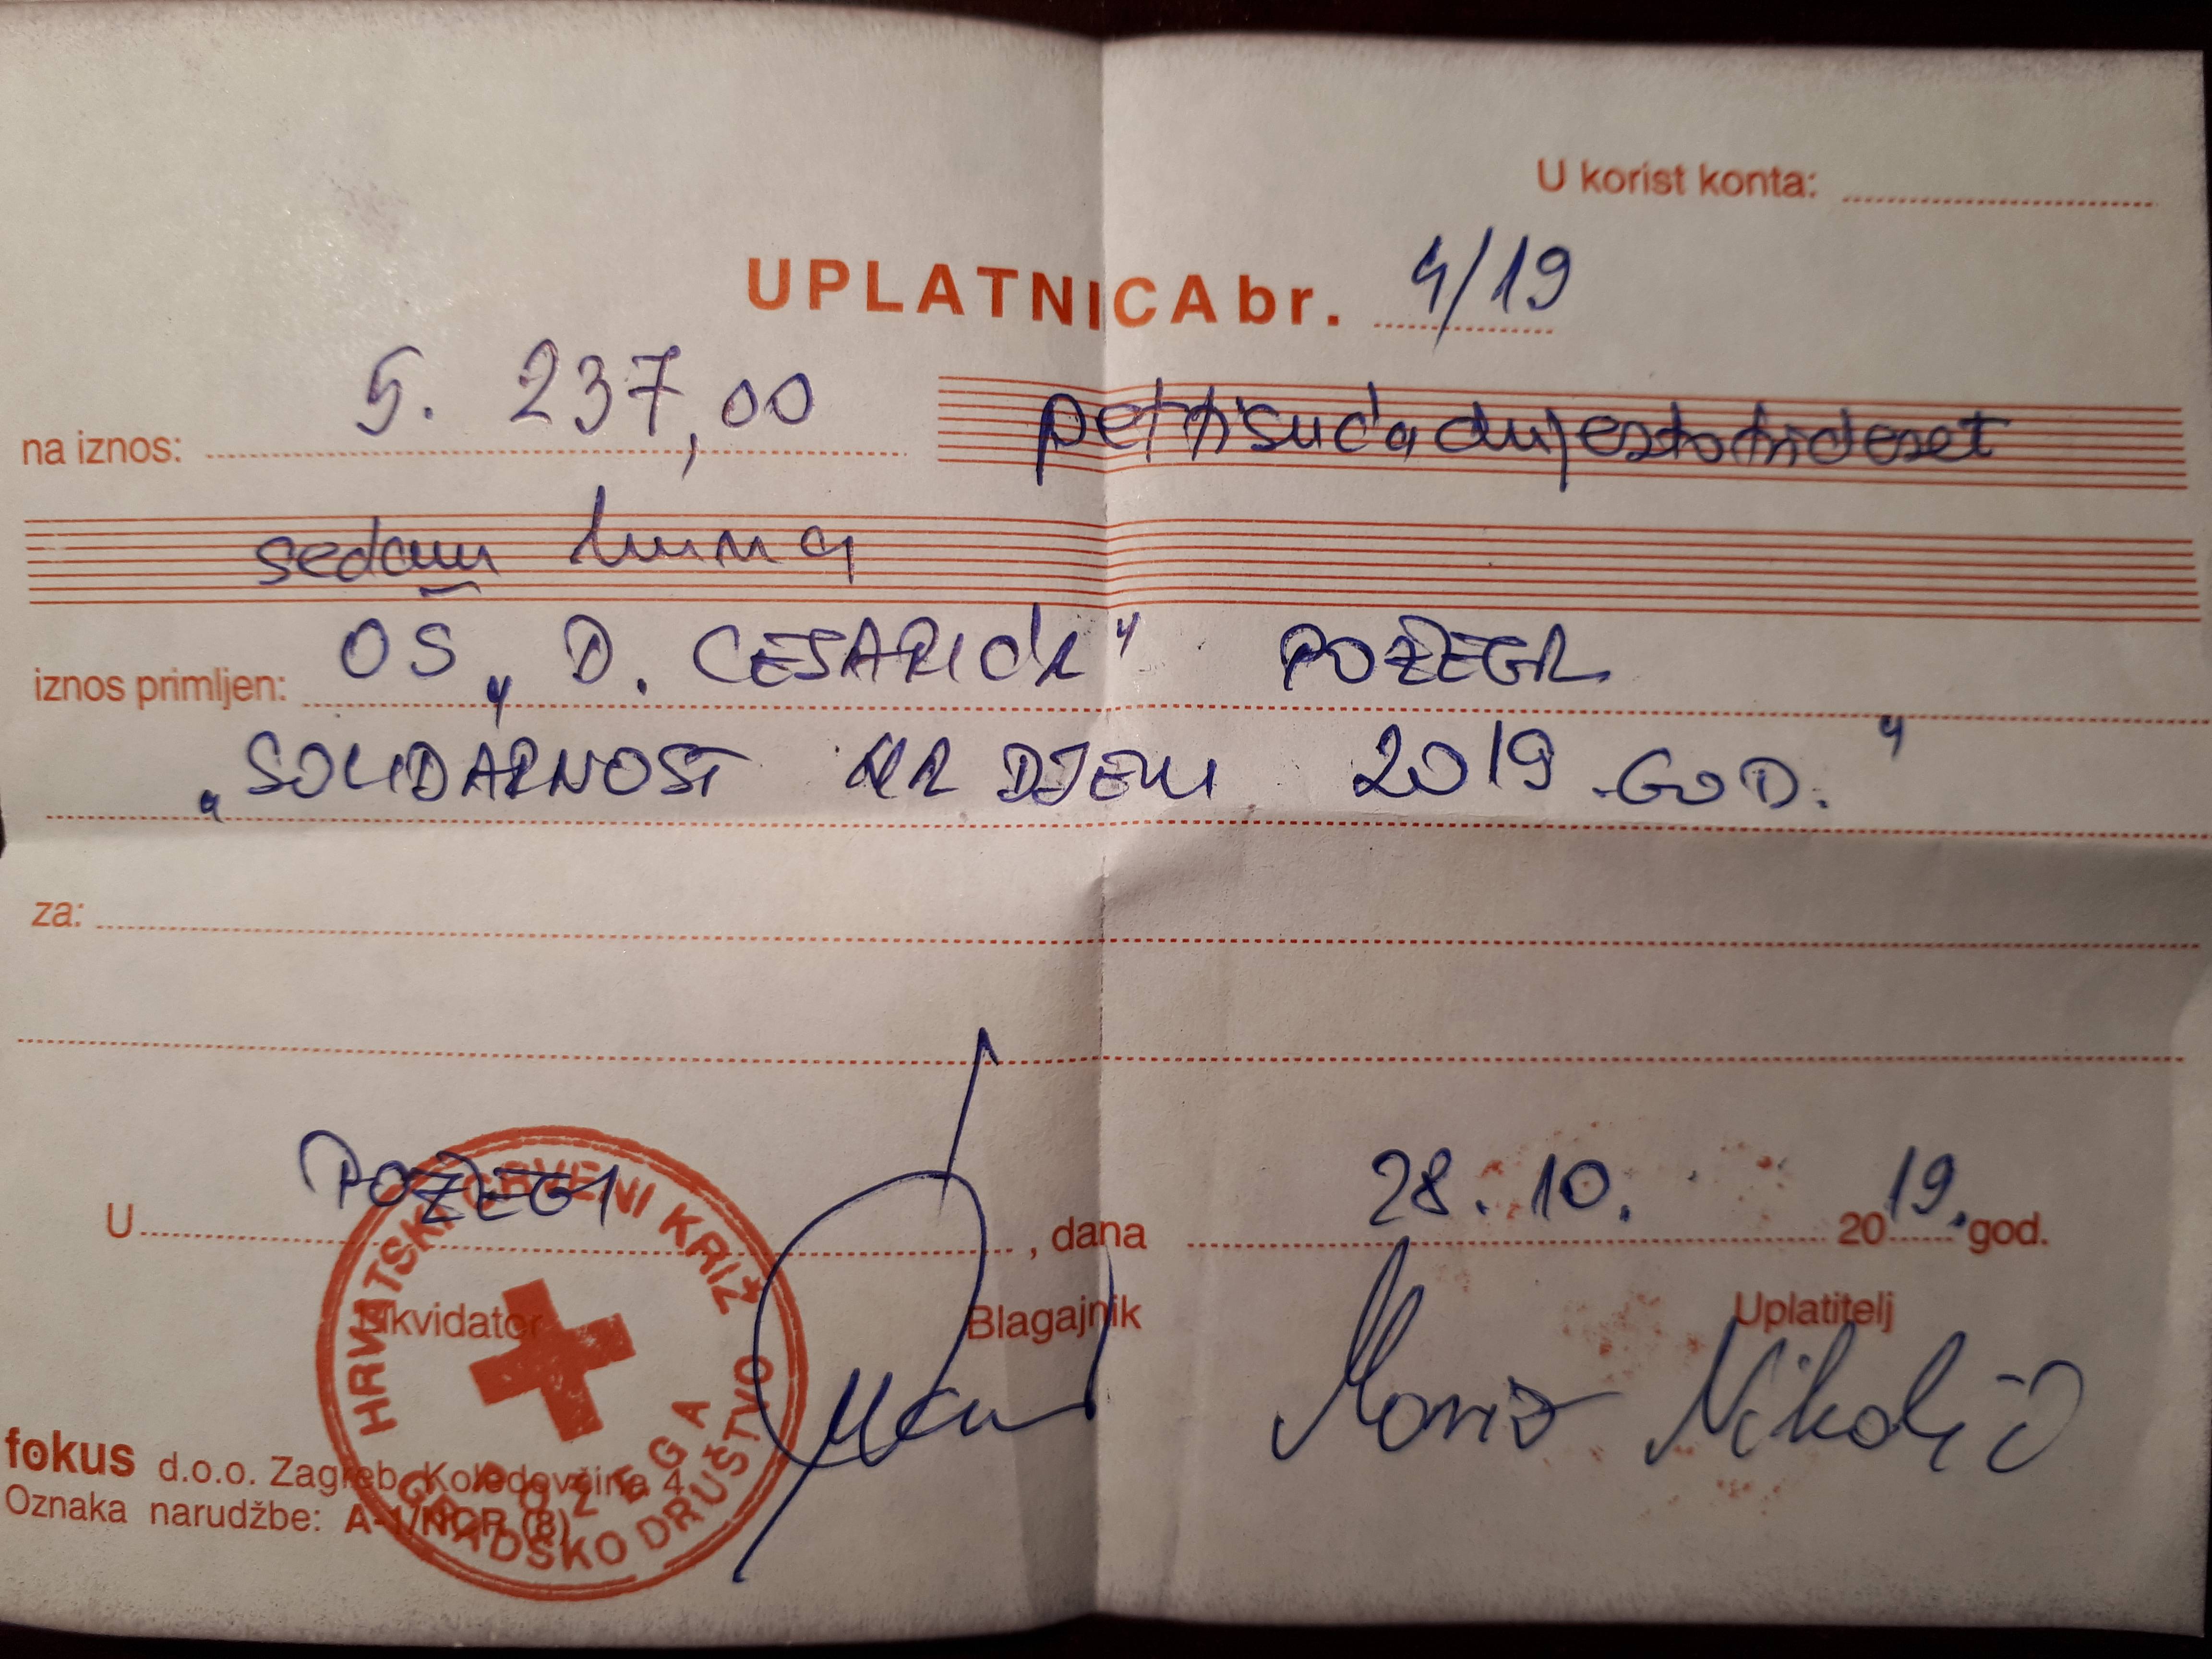 U korist konta:
UPLATNICA br. 4/19
na iznos: 5. 237,00 pettisućadvjestotrideset
sedam kuna
iznos primljen: OŠ „D. CESARIĆA" POŽEGA
„SOLIDARNOST NA DJELU 2019. GOD."
za:
U POŽEGI , dana 28. 10. 2019. god.
Likvidator Blagajnik Uplatitelj
Nikolić
HRVATSKI CRVENI KRIŽ
POŽEGA
GRADSKO DRUŠTVO
fokus d.o.o. Zagreb, Koledovčina 4
Oznaka narudžbe: A-1/NCR (8)